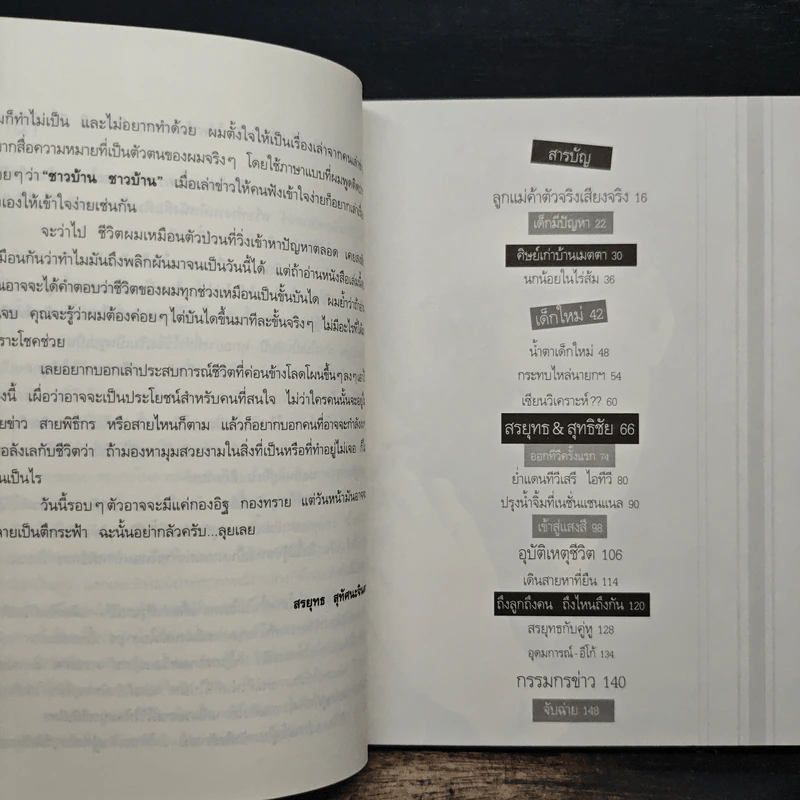 ก็ทำไม่เป็น และไม่อยากทำด้วย ผมตั้งใจให้เป็นเรื่องเล่าจากคนเล่า
ากสื่อความหมายที่เป็นตัวตนของผมจริงๆ โดยใช้ภาษาแบบที่ผมพูด
อยๆว่า “ชาวบ้าน ชาวบ้าน” เมื่อเล่าข่าวให้คนฟังเข้าใจง่ายก็อยากเล่า
เองให้เข้าใจง่ายเช่นกัน
จะว่าไป ชีวิตผมเหมือนตัวป่วนที่วิ่งเข้าหาปัญหาตลอด เคย
หมือนกันว่าทำไมมันถึงพลิกผันมาจนเป็นวันนี้ได้ แต่ถ้าอ่านหนังสือเล่ม
นอาจจะได้คำตอบว่าชีวิตของผมทุกช่วงเหมือนเป็นขั้นบันได ผมย้ำว่าถ้า
นจบ คุณจะรู้ว่าผมต้องค่อยๆไต่บันไดขึ้นมาทีละขั้นจริงๆ ไม่มีอะไรที่ได้
ราะโชคช่วย
เลยอยากบอกเล่าประสบการณ์ชีวิตที่ค่อนข้างโลดโผนขึ้นๆลงๆ
งนี้ เผื่อว่าอาจจะเป็นประโยชน์สำหรับคนที่สนใจ ไม่ว่าใครคนนั้นจะอยู่
ยข่าว สายพิธีกร หรือสายไหนก็ตาม แล้วก็อยากบอกคนที่อาจจะกำลัง
อลังเลกับชีวิตว่า ถ้ามองหามุมสวยงามในสิ่งที่เป็นหรือที่ทำอยู่ไม่เจอ ก็
นเป็นไร
วันนี้รอบๆตัวอาจจะมีแค่กองอิฐ กองทราย แต่วันหน้ามันอาจ
ลายเป็นตึกระฟ้า ฉะนั้นอย่ากลัวครับ...ลุยเลย
สรยุทธ สุทัศนะจินดา
สารบัญ
ลูกแม่ค้าตัวจริงเสียงจริง 16
เด็กมีปัญหา 22
ศิษย์เก่าบ้านเมตตา 30
นกน้อยในไร่ส้ม 36
เด็กใหม่ 42
น้ำตาเด็กใหม่ 48
กระทบไหล่นายกฯ 54
เซียนวิเคราะห์?? 60
สรยุทธ & สุทธิชัย 66
ออกทีวีครั้งแรก 74
ย่ำแดนทีวีเสรี ไอทีวี 80
ปรุงน้ำจิ้มที่เนชั่นแชนแนล 90
เข้าสู่แสงสี 98
อุบัติเหตุชีวิต 106
เดินสายหาที่ยืน 114
ถึงลูกถึงคน ถึงไหนถึงกัน 120
สรยุทธกับคู่หู 128
อุดมการณ์-อีโก้ 134
กรรมกรข่าว 140
จับฉ่าย 148